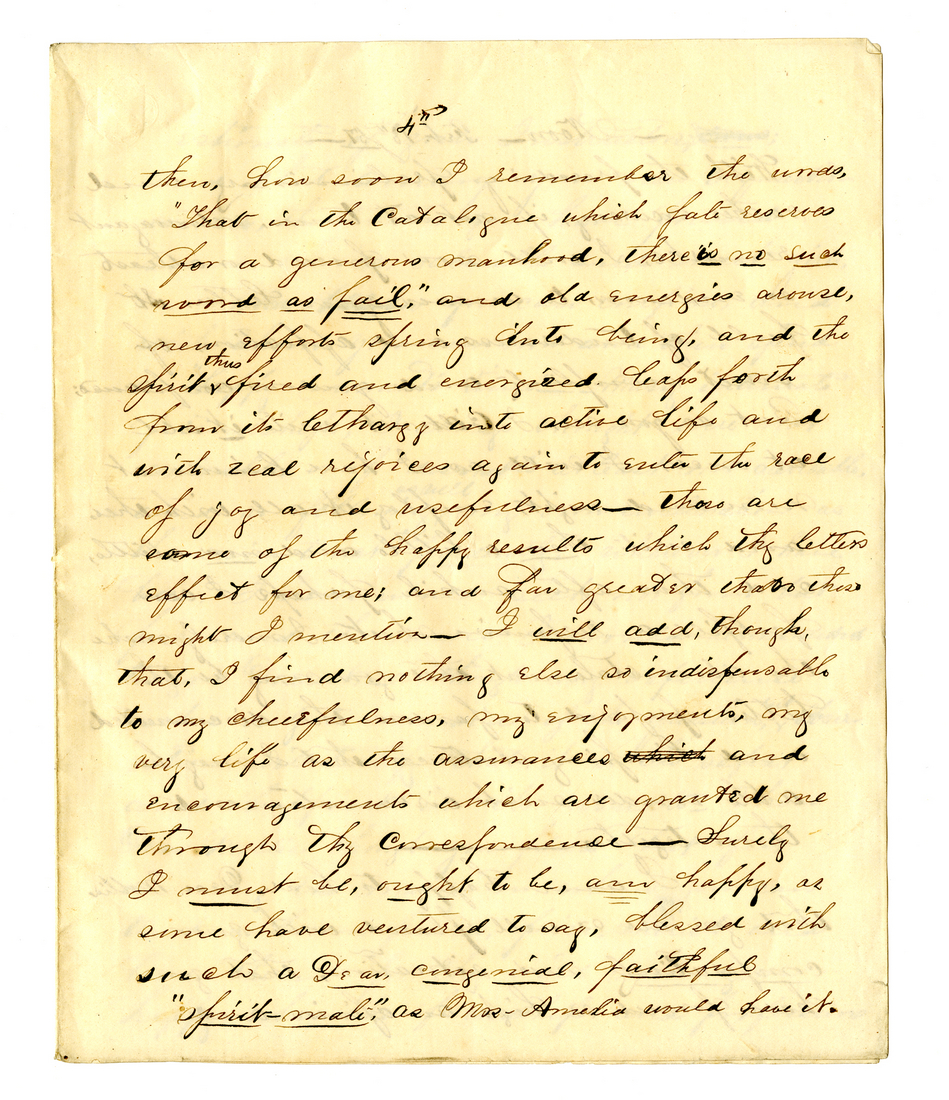 4th
then, how soon I remember the words,
"That in the Catalogue which fate reserves
for a generous manhood, there is no such
word as fail," and old energies arouse,
new efforts spring into being, and the
thus
spirit fired and energized leaps forth
from its lethargy into active life and
with zeal rejoices again to enter the race
of joy and usefulness — these are
some of the happy results which thy letters
effect for me; and far greater than these
might I mention — I will add, though,
that, I find nothing else so indispensable
to my cheerfulness, my enjoyments, my
very life as the assurances which and
encouragements which are granted me
through thy Correspondence — Surely
I must be, ought to be, am happy, as
some have ventured to say, blessed with
such a Dear, congenial, faithful
"spirit-mate", as Mrs- Amelia would have it.